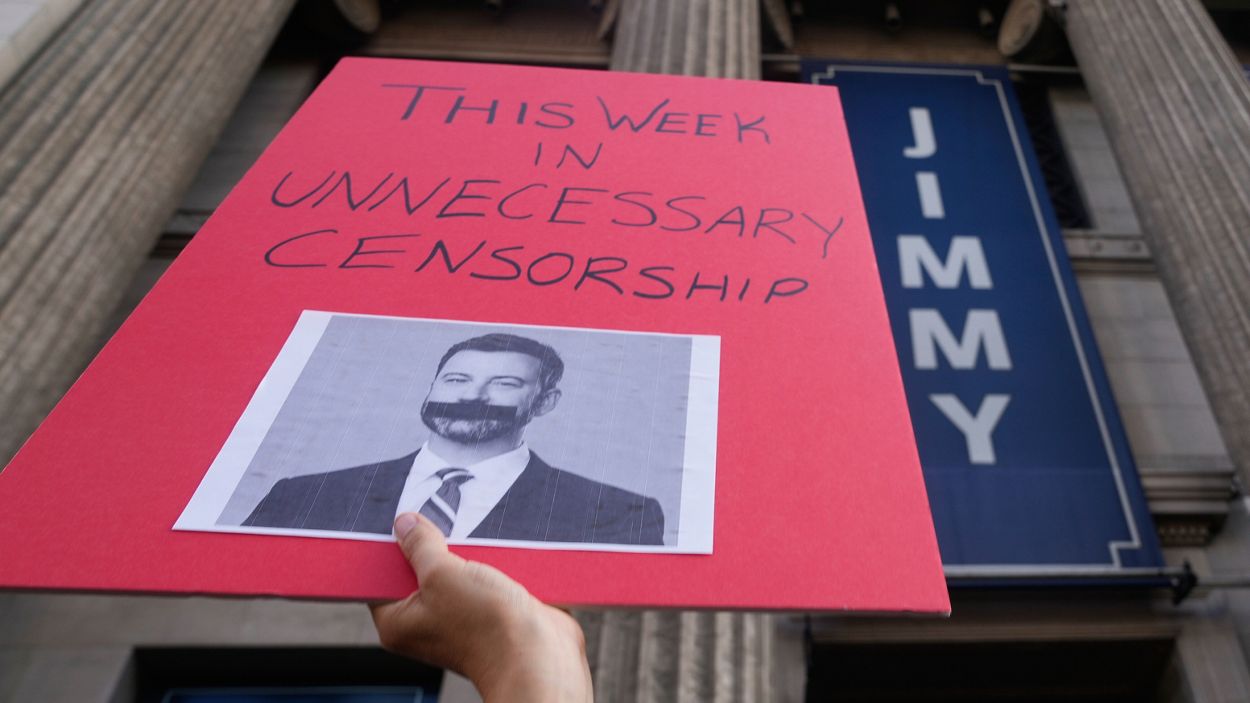 THIS WEEK
IN
UNNECESSARY
CENSORSHIP
JIMMY